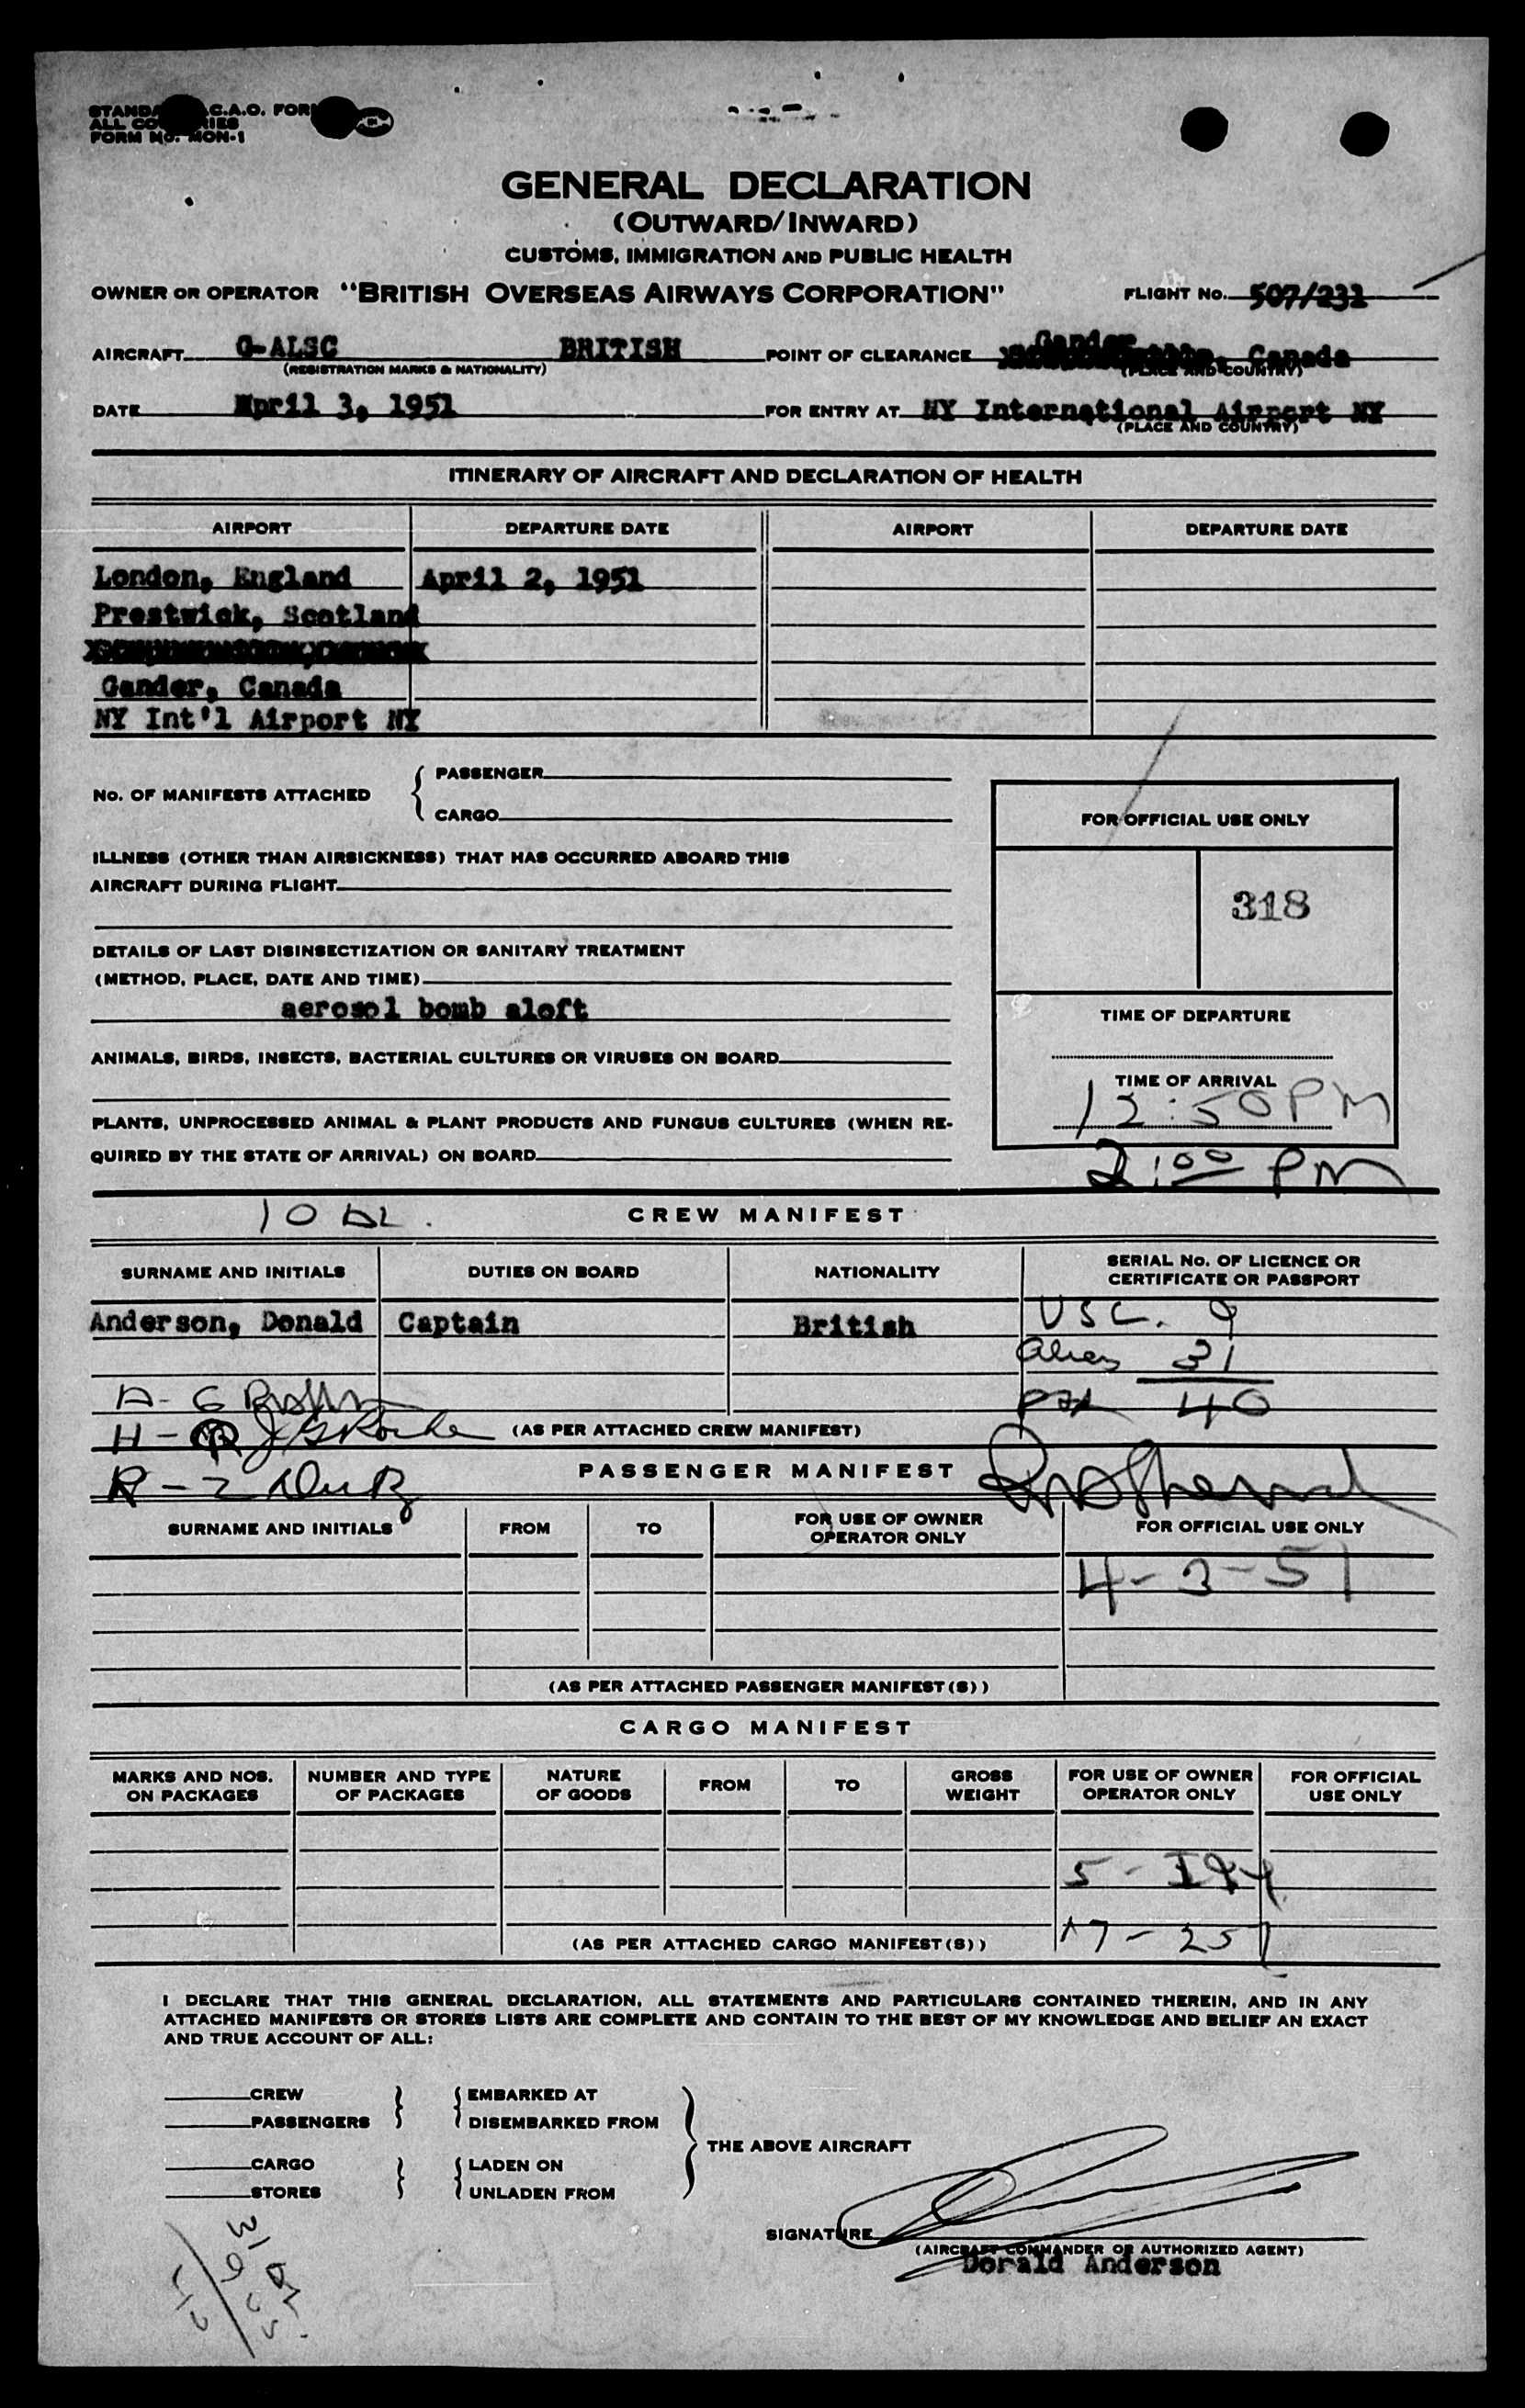 STANDA C.A.O. FOR
ALL CO RIES
FORM NO. MON-1
GENERAL DECLARATION
(OUTWARD/INWARD)
CUSTOMS, IMMIGRATION AND PUBLIC HEALTH
OWNER OR OPERATOR "BRITISH OVERSEAS AIRWAYS CORPORATION" FLIGHT NO. 507/231
AIRCRAFT G-ALSC BRITISH POINT OF CLEARANCE Gander, Canada
(REGISTRATION MARKS & NATIONALITY) (PLACE AND COUNTRY)
DATE April 3, 1951 FOR ENTRY AT NY International Airport NY
(PLACE AND COUNTRY)
ITINERARY OF AIRCRAFT AND DECLARATION OF HEALTH
AIRPORT DEPARTURE DATE AIRPORT DEPARTURE DATE
London, England April 2, 1951
Prestwick, Scotland
Gander, Canada
NY Int'l Airport NY
No. OF MANIFESTS ATTACHED { PASSENGER
CARGO
FOR OFFICIAL USE ONLY
ILLNESS (OTHER THAN AIRSICKNESS) THAT HAS OCCURRED ABOARD THIS
AIRCRAFT DURING FLIGHT
318
DETAILS OF LAST DISINSECTIZATION OR SANITARY TREATMENT
(METHOD, PLACE, DATE AND TIME)
aerosol bomb aloft
TIME OF DEPARTURE
ANIMALS, BIRDS, INSECTS, BACTERIAL CULTURES OR VIRUSES ON BOARD
TIME OF ARRIVAL
12:50 PM
PLANTS, UNPROCESSED ANIMAL & PLANT PRODUCTS AND FUNGUS CULTURES (WHEN RE-
QUIRED BY THE STATE OF ARRIVAL) ON BOARD
2:00 PM
10 CREW MANIFEST
SURNAME AND INITIALS DUTIES ON BOARD NATIONALITY SERIAL No. OF LICENCE OR
CERTIFICATE OR PASSPORT
Anderson, Donald Captain British USC. 9
alien 31
A- G
pax 40
H - (AS PER ATTACHED CREW MANIFEST)
R - PASSENGER MANIFEST
SURNAME AND INITIALS FROM TO FOR USE OF OWNER
OPERATOR ONLY FOR OFFICIAL USE ONLY
4-3-51
(AS PER ATTACHED PASSENGER MANIFEST(S))
CARGO MANIFEST
MARKS AND NOS.
ON PACKAGES NUMBER AND TYPE
OF PACKAGES NATURE
OF GOODS FROM TO GROSS
WEIGHT FOR USE OF OWNER
OPERATOR ONLY FOR OFFICIAL
USE ONLY
(AS PER ATTACHED CARGO MANIFEST(S))
I DECLARE THAT THIS GENERAL DECLARATION, ALL STATEMENTS AND PARTICULARS CONTAINED THEREIN, AND IN ANY
ATTACHED MANIFESTS OR STORES LISTS ARE COMPLETE AND CONTAIN TO THE BEST OF MY KNOWLEDGE AND BELIEF AN EXACT
AND TRUE ACCOUNT OF ALL:
CREW } { EMBARKED AT
PASSENGERS DISEMBARKED FROM
THE ABOVE AIRCRAFT
CARGO } { LADEN ON
STORES UNLADEN FROM
SIGNATURE
(AIRCRAFT COMMANDER OR AUTHORIZED AGENT)
Donald Anderson